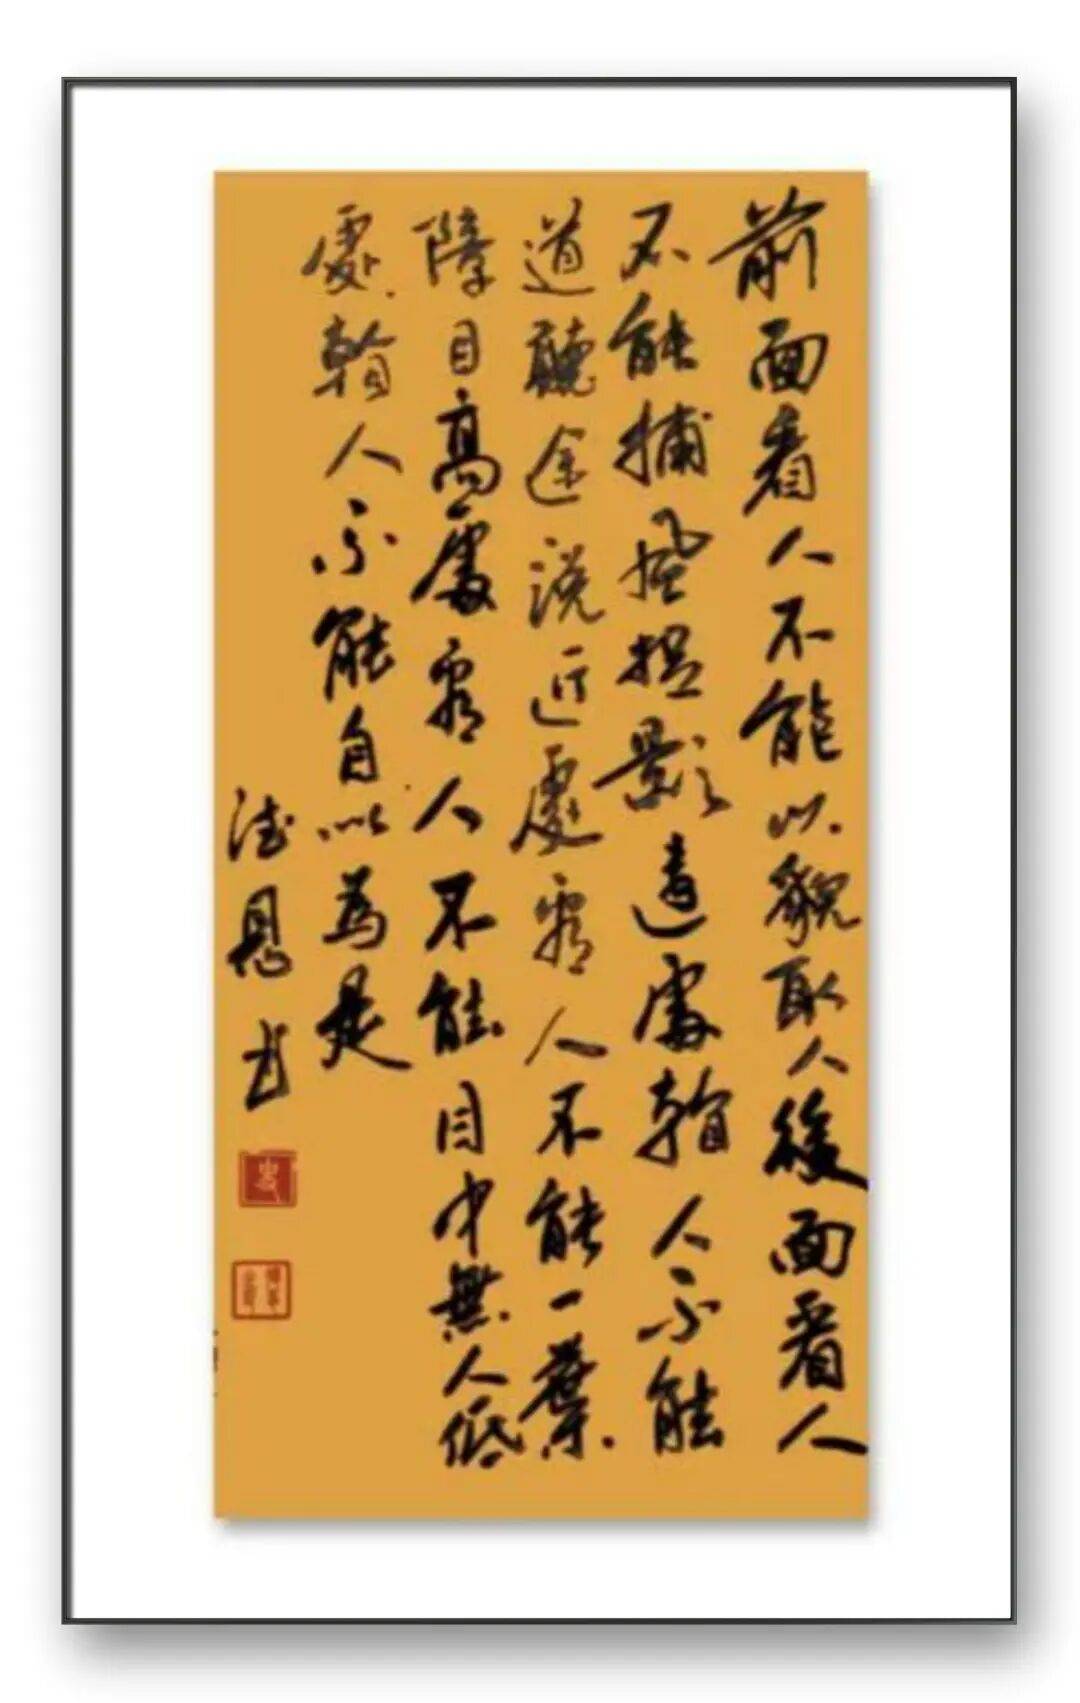 前面看人不能以貌取人後面看人
不能捕風捉影遠處看人不能
道聽途説近處看人不能一葉
障目高處看人不能目中無人低
處看人不能自以為是
德恩书